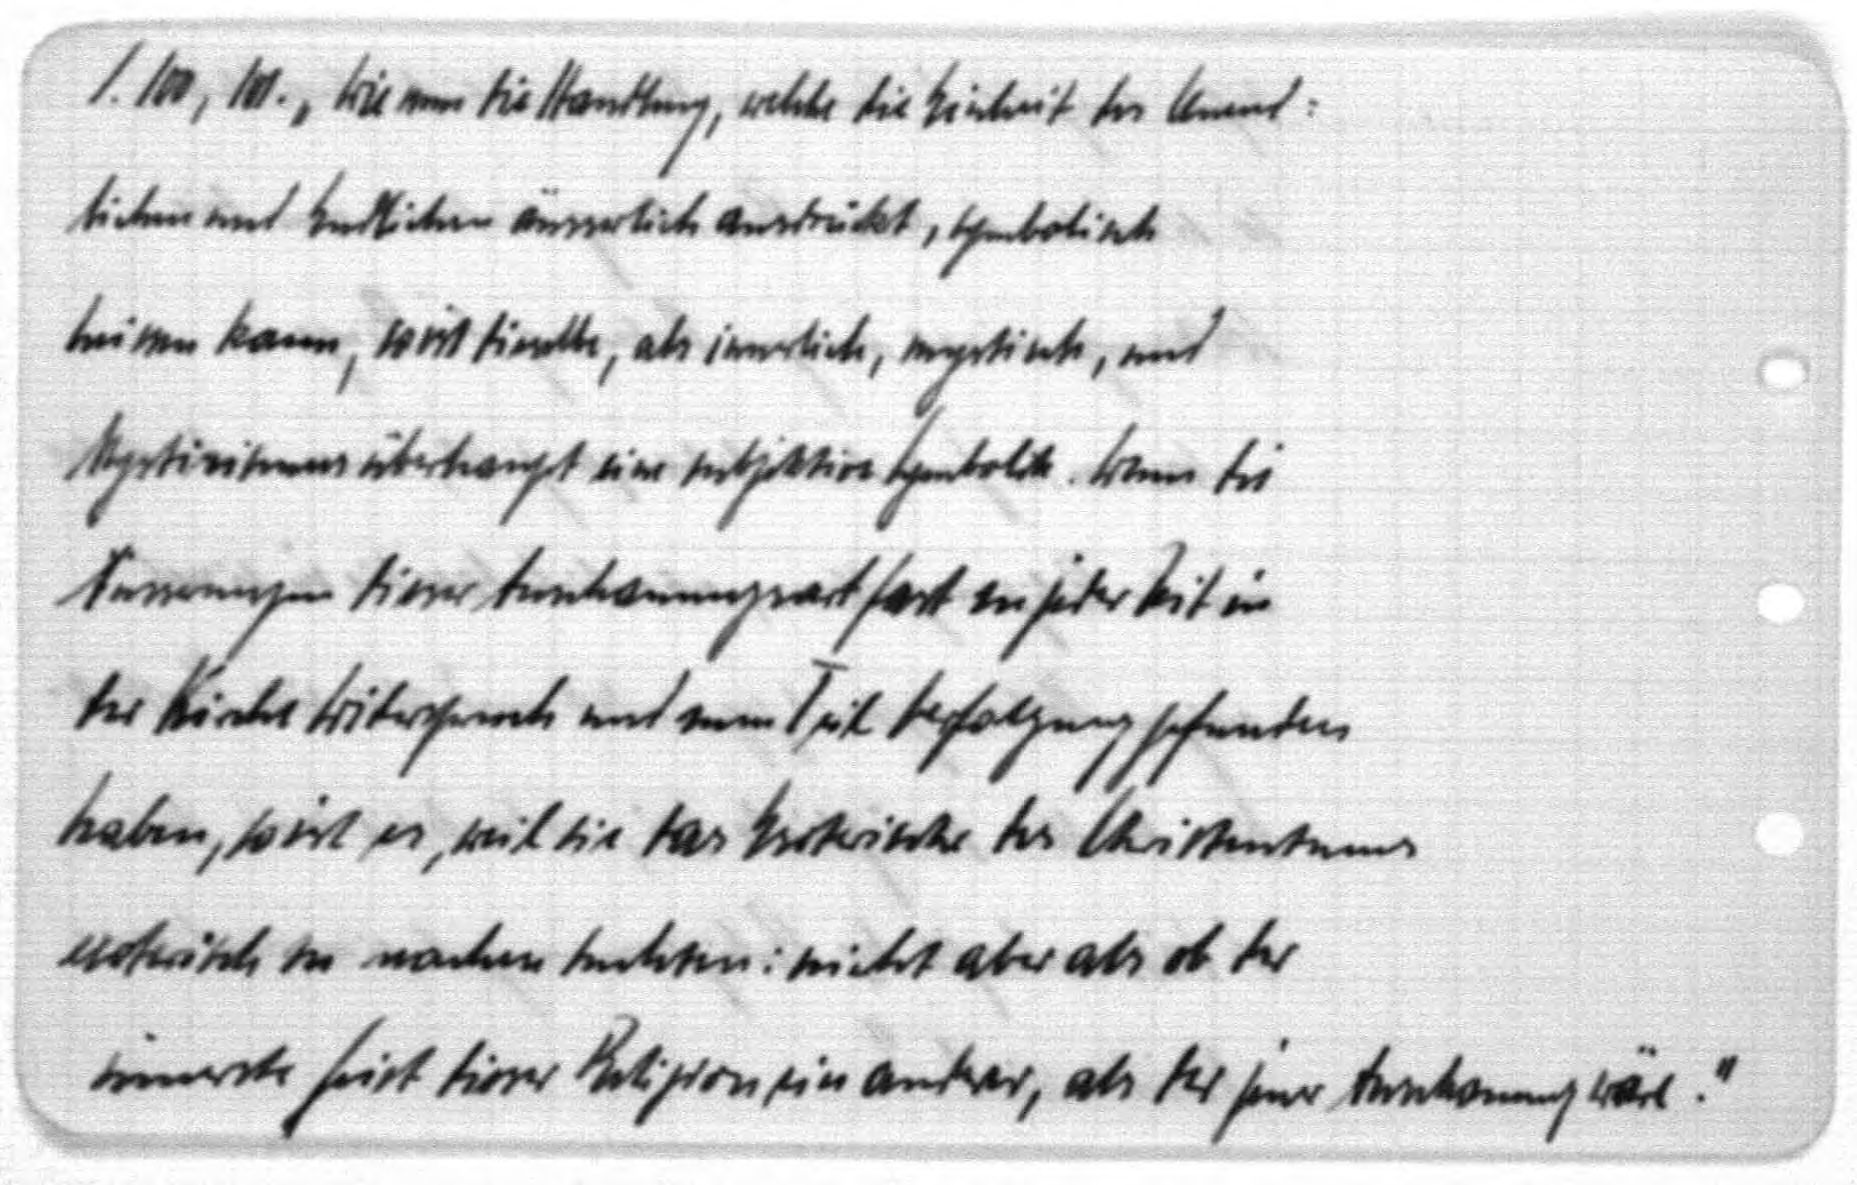 S. 100, 101. „Wie nun die Handlung, welche die Einheit des Unend:
lichen und Endlichen äusserlich ausdrückt, symbolisch
heissen kann, so ist dieselbe, als innerlich, mystisch, und
Mysticismus überhaupt eine subjektive Symbolik. Wenn die
Äusserungen dieser Anschauungsart fast zu jeder Zeit in
der Kirche Widerspruch und zum Teil Verfolgung gefunden
haben, so ist es, weil sie das Esoterische des Christentums
exoterisch zu machen suchten: nicht aber als ob der
innerste Geist dieser Religion ein anderer, als der jener Anschauung wäre."